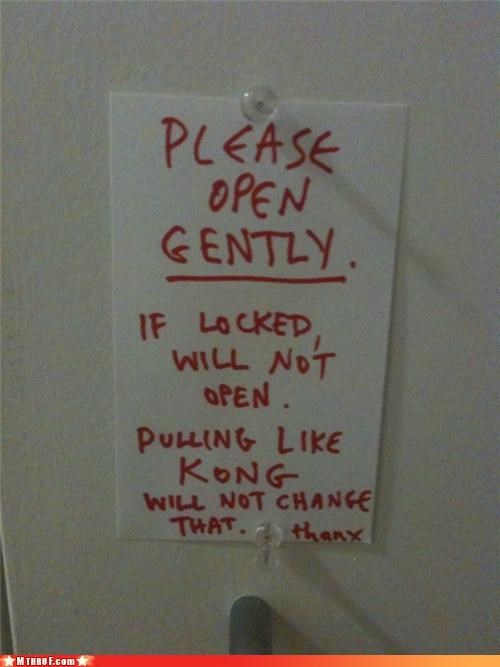 PLEASE
OPEN
GENTLY.
IF LOCKED,
WILL NOT
OPEN.
PULLING LIKE
KONG
WILL NOT CHANGE
THAT. thanx
MTHRUF.com